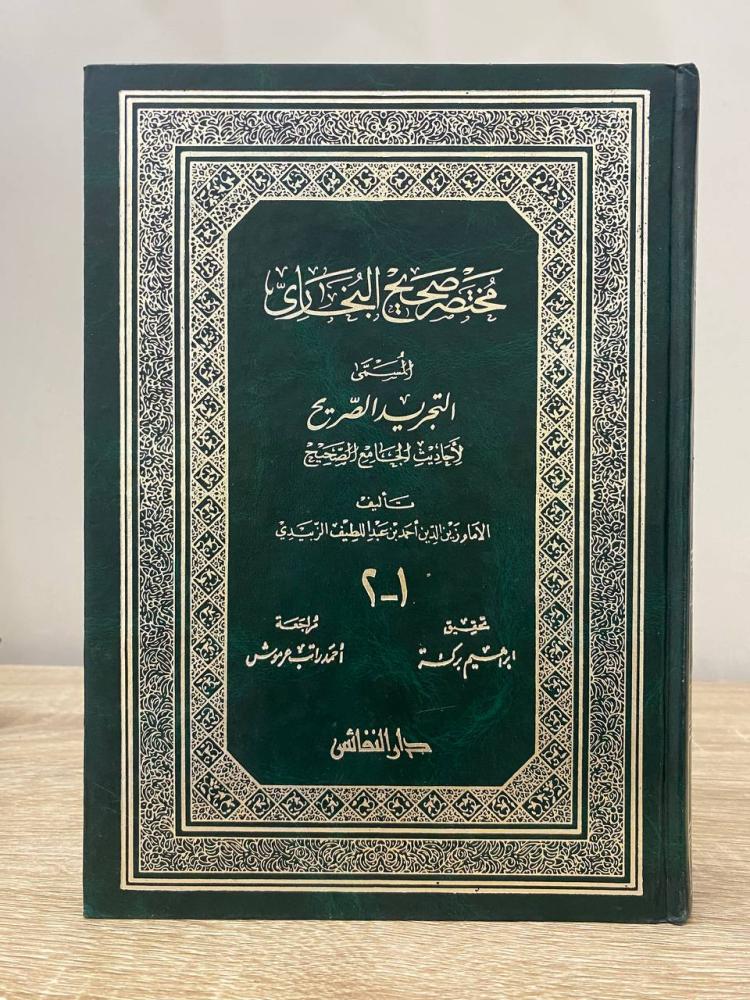 مُختَصَر صَحِيح البُخَارِيّ
المُسَمَّى
التجريد الصّريح
لأحَاديثِ الجَامِع الصَّحِيح
تأليف
الإمام زين الدين أحمد بن عبد اللطيف الزّبيدي
١-٢
تحقيق
ابراهيم بركة
مُراجَعة
أحمد راتب عرموش
دار النفائس